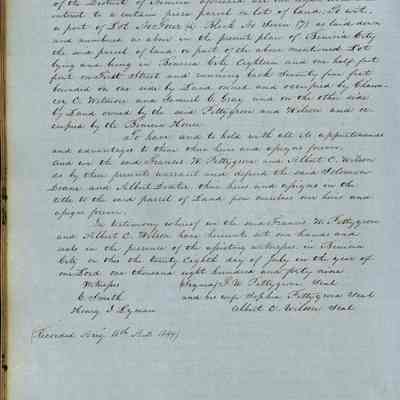 of the District of Benicia aforesaid all our right and
interest to a certain piece parcel or lot of land, to wit,
a part of Lot No Four (4) Block No Seven (7) as laid down
and numbered as above in the present plan of Benicia City
the said parcel of land or part of the above mentioned Lot
lying and being in Benicia City Eighteen and one half feet
front on First Street and running back Seventy five feet
bounded on one side by Land owned and occupied by Chaun-
cey C. Wetmore and Samuel C. Gray and on the other side
by Land owned by the said Pettygrove and Wilson and oc-
cupied by the Benicia House
To have and to hold with all its appurtenances
and advantages to them their heirs and assigns forever.
And we the said Francis W. Pettygrove and Albert C. Wilson
do by these presents warrant and defend the said Solomon
Deane and Albert their heirs and assigns in the
title to the said parcel of Land from ourselves our heirs and
assigns forever.
In testimony whereof we the said Francis W. Pettygrove
and Albert C. Wilson have hereunto set our hands and
seals in the presence of the witnesses in Benicia
City on this the twenty Eighth day of July in the year of
our Lord one thousand eight hundred and forty nine
Witnesses Signed F. W. Pettygrove Seal
C. Smith and his wife Sophia Pettygrove Seal
Henry J. Lyman Albert C. Wilson Seal
(Recorded Aug. 11th A.D. 1849)